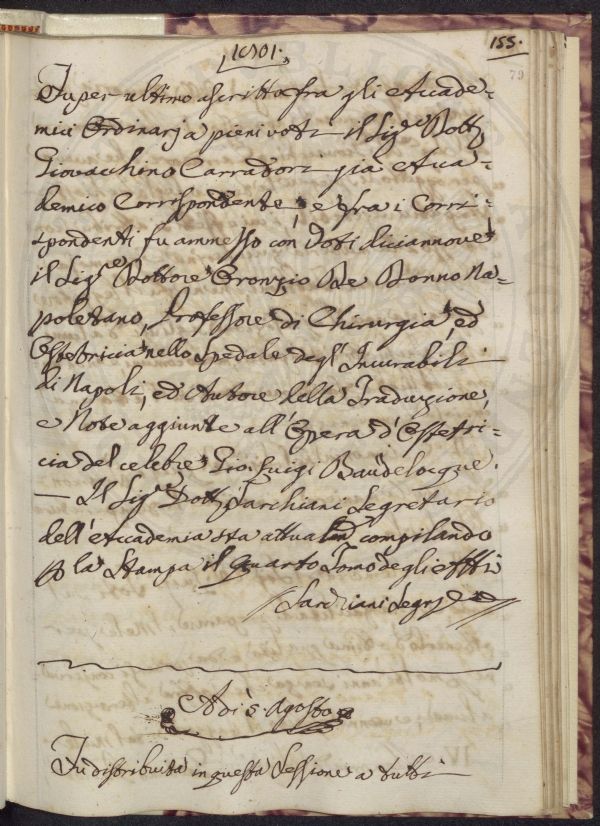 1801.
155.
79
Fu per ultimo ascritto fra gli Accade=
mici Ordinarj a pieni voti il Sig.re Dott.
Giovacchino Carradori già Acca=
demico Corrispondente, e fra i Corri=
spondenti fu ammesso con Voti diciannove
il Sig.re Dottore Oronzio De Bonno Na=
poletano, Professore di Chirurgia ed
Ostetricia nello Spedale degl'Incurabili
di Napoli, ed Autore della Traduzione,
e Note aggiunte all'Opera d'Ostetri=
cia del celebre Gio: Luigi Baudelocque.
— Il Sig.re Dott. Sarchiani Segretario
dell'Accademia sta attualm. compilando
p la Stampa il Quarto Tomo degli Atti
Sarchiani Segr.
A dì 5. Agosto
Fu distribuita in questa Sessione a tutti